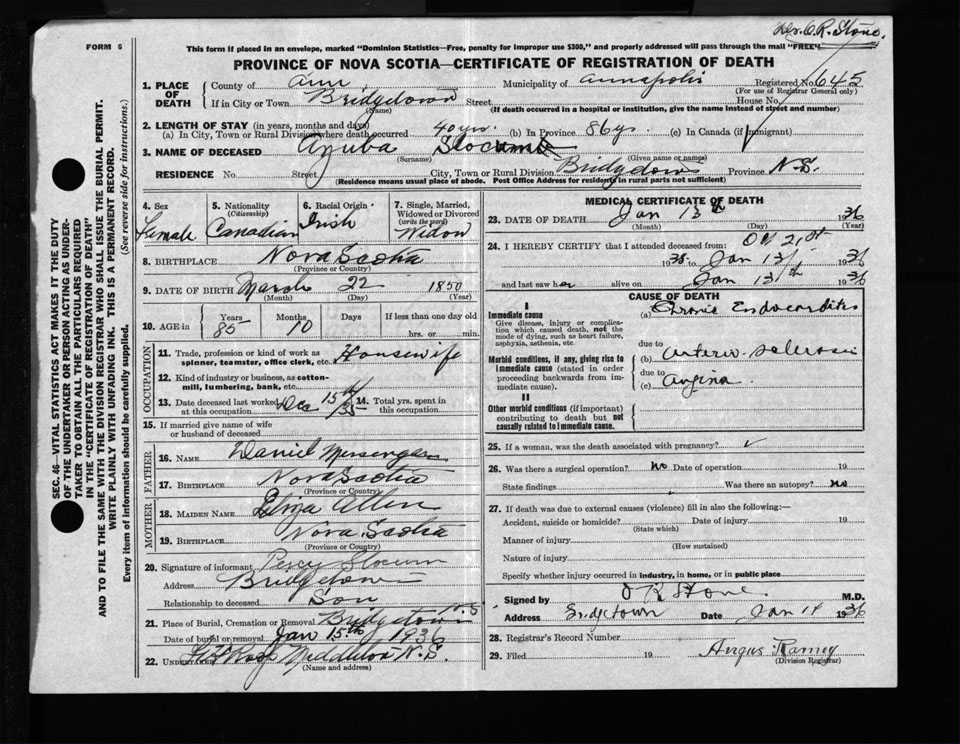 Dr. O. R. Stone.
FORM 6
This form if placed in an envelope, marked "Dominion Statistics—Free, penalty for improper use $300," and properly addressed will pass through the mail "FREE".
PROVINCE OF NOVA SCOTIA—CERTIFICATE OF REGISTRATION OF DEATH
1. PLACE OF DEATH
County of Ann Municipality of Annapolis Registered No. 645
(For use of Registrar General only)
If in City or Town Bridgetown Street House No.
(Name) (If death occurred in a hospital or institution, give the name instead of street and number)
2. LENGTH OF STAY (in years, months and days)
(a) In City, Town or Rural Division where death occurred 40 yrs. (b) In Province 86 ys. (c) In Canada (if immigrant)
3. NAME OF DECEASED Azuba Slocumb
(Surname) (Given name or names)
RESIDENCE No. Street City, Town or Rural Division Bridgetown Province N.S.
(Residence means usual place of abode. Post Office Address for residents in rural parts not sufficient)
4. Sex Female
5. Nationality (Citizenship) Canadian
6. Racial Origin Irish
7. Single, Married, Widowed or Divorced (write the word) Widow
8. BIRTHPLACE Nova Scotia
(Province or Country)
9. DATE OF BIRTH March 22 1850
(Month) (Day) (Year)
10. AGE in Years 85 Months 10 Days If less than one day old hrs. or min.
OCCUPATION
11. Trade, profession or kind of work as spinner, teamster, office clerk, etc. Housewife
12. Kind of industry or business, as cotton-mill, lumbering, bank, etc.
13. Date deceased last worked at this occupation Dec 15th/35
14. Total yrs. spent in this occupation.
15. If married give name of wife or husband of deceased
FATHER
16. NAME Daniel Messenger
17. BIRTHPLACE Nova Scotia
(Province or Country)
MOTHER
18. MAIDEN NAME Eliza Allen
19. BIRTHPLACE Nova Scotia
(Province or Country)
20. Signature of informant Percy Slocum
Address Bridgetown
Relationship to deceased Son
21. Place of Burial, Cremation or Removal Bridgetown N.S.
Date of burial or removal Jan 15th 1936
22. UNDERTAKER Middleton N.S.
(Name and address)
MEDICAL CERTIFICATE OF DEATH
23. DATE OF DEATH Jan 13th 1936
(Month) (Day) (Year)
24. I HEREBY CERTIFY that I attended deceased from: Oct 21st
1935 to Jan 13/ 1936
and last saw her alive on Jan 13th 1936
CAUSE OF DEATH
I
Immediate cause
Give disease, injury or complication which caused death, not the mode of dying, such as heart failure, asphyxia, asthenia, etc.
(a) Chronic Endocarditis
due to
Morbid conditions, if any, giving rise to immediate cause (stated in order proceeding backwards from immediate cause).
(b) Arterio-sclerosis
due to
(c) Angina.
II
Other morbid conditions (if important) contributing to death but not causally related to immediate cause.
25. If a woman, was the death associated with pregnancy?
26. Was there a surgical operation? No Date of operation 19
State findings Was there an autopsy? No
27. If death was due to external causes (violence) fill in also the following:—
Accident, suicide or homicide? Date of injury 19
(State which)
Manner of injury
(How sustained)
Nature of injury
Specify whether injury occurred in industry, in home, or in public place
Signed by O R Stone M.D.
Address Bridgetown Date Jan 14 1936
28. Registrar's Record Number
29. Filed 19 Angus Ramey
(Division Registrar)
SEC. 46—VITAL STATISTICS ACT MAKES IT THE DUTY
OF THE UNDERTAKER OR PERSON ACTING AS UNDER-
TAKER TO OBTAIN ALL THE PARTICULARS REQUIRED
IN THE "CERTIFICATE OF REGISTRATION OF DEATH"
AND TO FILE THE SAME WITH THE DIVISION REGISTRAR WHO SHALL ISSUE THE BURIAL PERMIT.
WRITE PLAINLY WITH UNFADING INK. THIS IS A PERMANENT RECORD.
Every item of information should be carefully supplied. (See reverse side for instructions.)